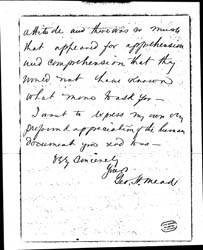 attitude and there was so much
that appeared for apprehension
and comprehension that they
would not have known
what more to ask you —
I want to express my own very
profound appreciation of the human
document you read to us —
Very Sincerely
Yours
Geo. H. Mead